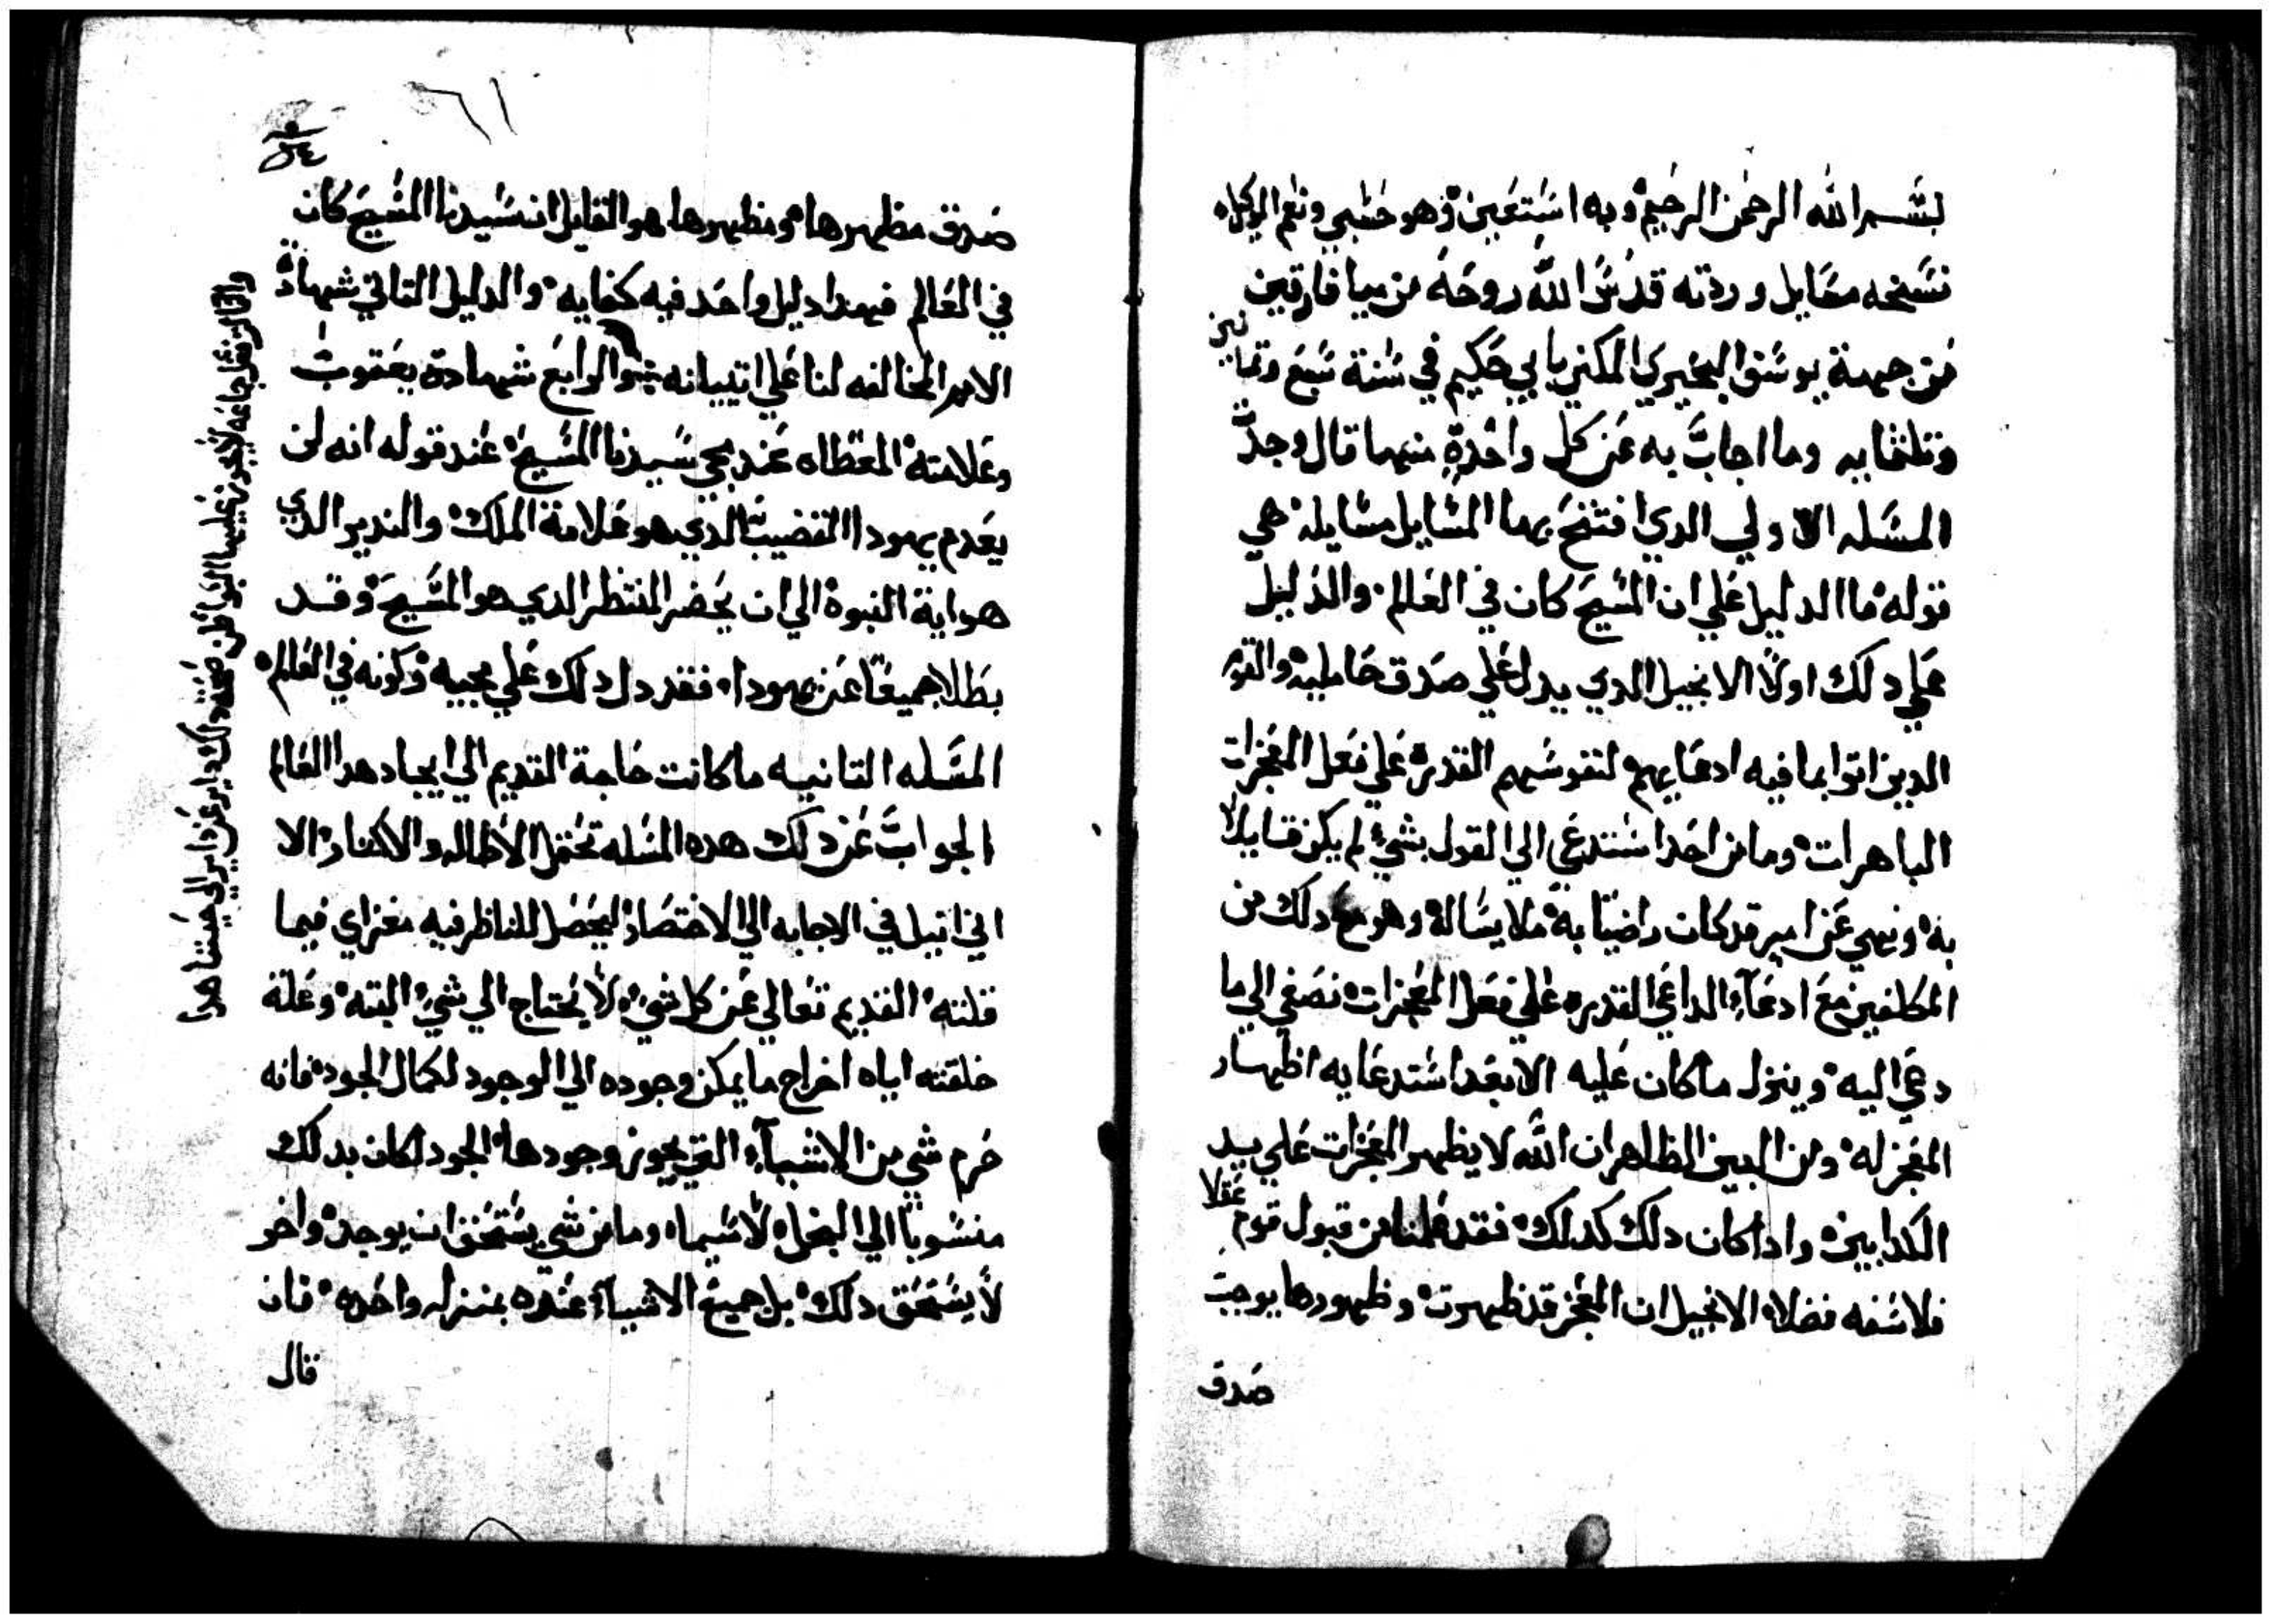 بسم الله الرحمن الرحيم وبه استعين وهو حسبي ونعم الوكيل
نسخه مسايل وردته قدس الله روحه من ميافارقين
من جهة يوسف البحيري المكنى بابي حكيم في سنة سبع وتمانين
وتلتمايه وما اجاب به عن كل واحدة منهما قال وجدت
المسله الاولي الدي افتتح بها المسايل مسايله هي
قوله ما الدليل علي ان المسيح كان في العالم والدليل
علي دلك اولا الانجيل الدي يدل علي صدق حامليه والقوم
الدين اتوا بما فيه ادعايهم لنفوسهم القدرة علي فعل المعجزات
الباهرات وما من احد استدعي الي القول بشيء لم يكن قايلا
به ونهي عن امر قد كان راضيا به ملا يساله وهو مع دلك من
المكلفين مع ادعاء الداعي القدره علي فعل المعجزات نصغي الي ما
دعي اليه وينزل ما كان عليه الا بعد استدعايه اظهار
المعجز له ومن البين الظاهر ان الله لا يظهر المعجزات علي يد
الكدابين وادا كان دلك كدلك فقد علمنا من قبول قوم عقلا
فلاسفه فضلاء الانجيل ان المعجز قد ظهرت وظهورها يوجب
صدق
صدق مظهرها ومظهرها هو القايل ان سيدنا المسيح كان
في العالم فهدا دليل واحد فيه كفايه والدليل التاني شهادة
الامم المخالفه لنا علي اتيانه والرابع شهادة يعقوب
وعلامته المعطاه عند مجي سيدنا المسيح عند قوله انه لن
يعدم يهودا القضيب الدي هو علامة الملك والندير الدي
هو اية النبوة الي ان يحضر المنتظر الدي هو المسيح وقد
بطلا جميعا عن يهودا فقد دل دلك علي مجيه وكونه في العالم
المسله التانيه ما كانت حاجة القديم الي ايجاد هدا العالم
الجواب عن دلك هده المسله تحتمل الاطاله والاكتار الا
اني اتيل في الاجابه الي الاختصار ليحصل للناظر فيه مغزاي فيما
قلته القديم تعالي عن كل شيء لا يحتاج الي شيء البته وعلة
خلقته اياه اخراج ما يمكن وجوده الي الوجود لكمال الجود فانه
حرم شي من الاشياء التي يجوز وجودها الجود لكان بدلك
منسوبا الي البخل لا سيما وما من شي يستحق ان يوجد واخر
لا يستحق دلك بل جميع الاشياء عنده بمنزله واحده فان
قال